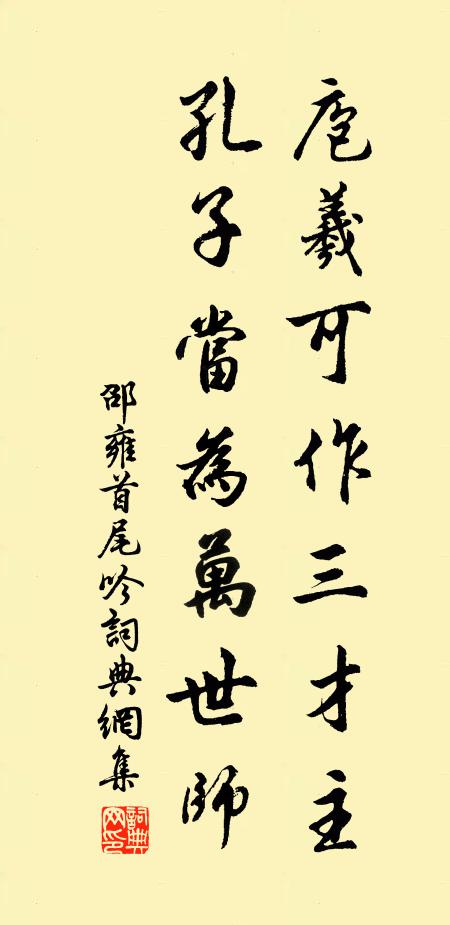 庖羲可作三才主
孔子當為萬世師
邵雍首尾吟詞典網集
詞典網印